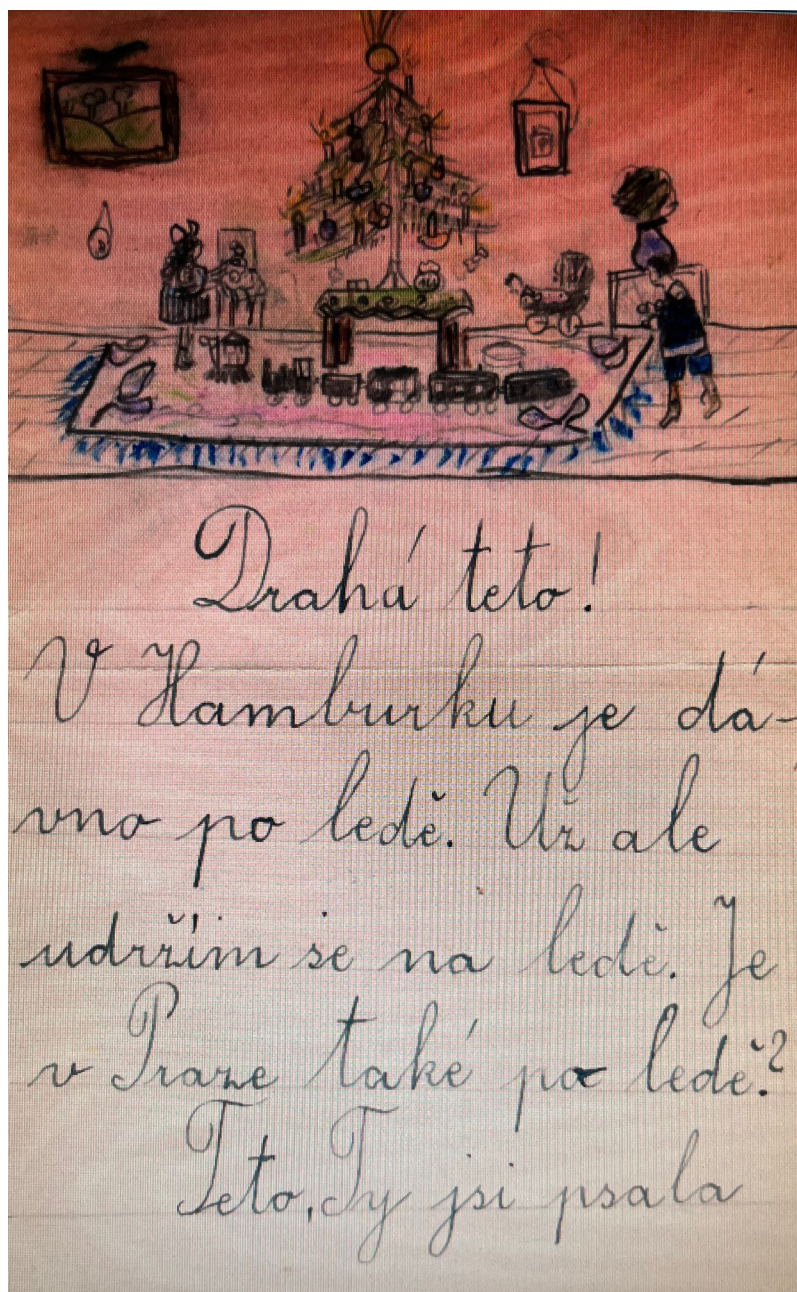 Drahá teto!
V Hamburku je dá-
vno po ledě. Už ale
udržím se na ledě. Je
v Praze také po ledě?
Teto, Ty jsi psala